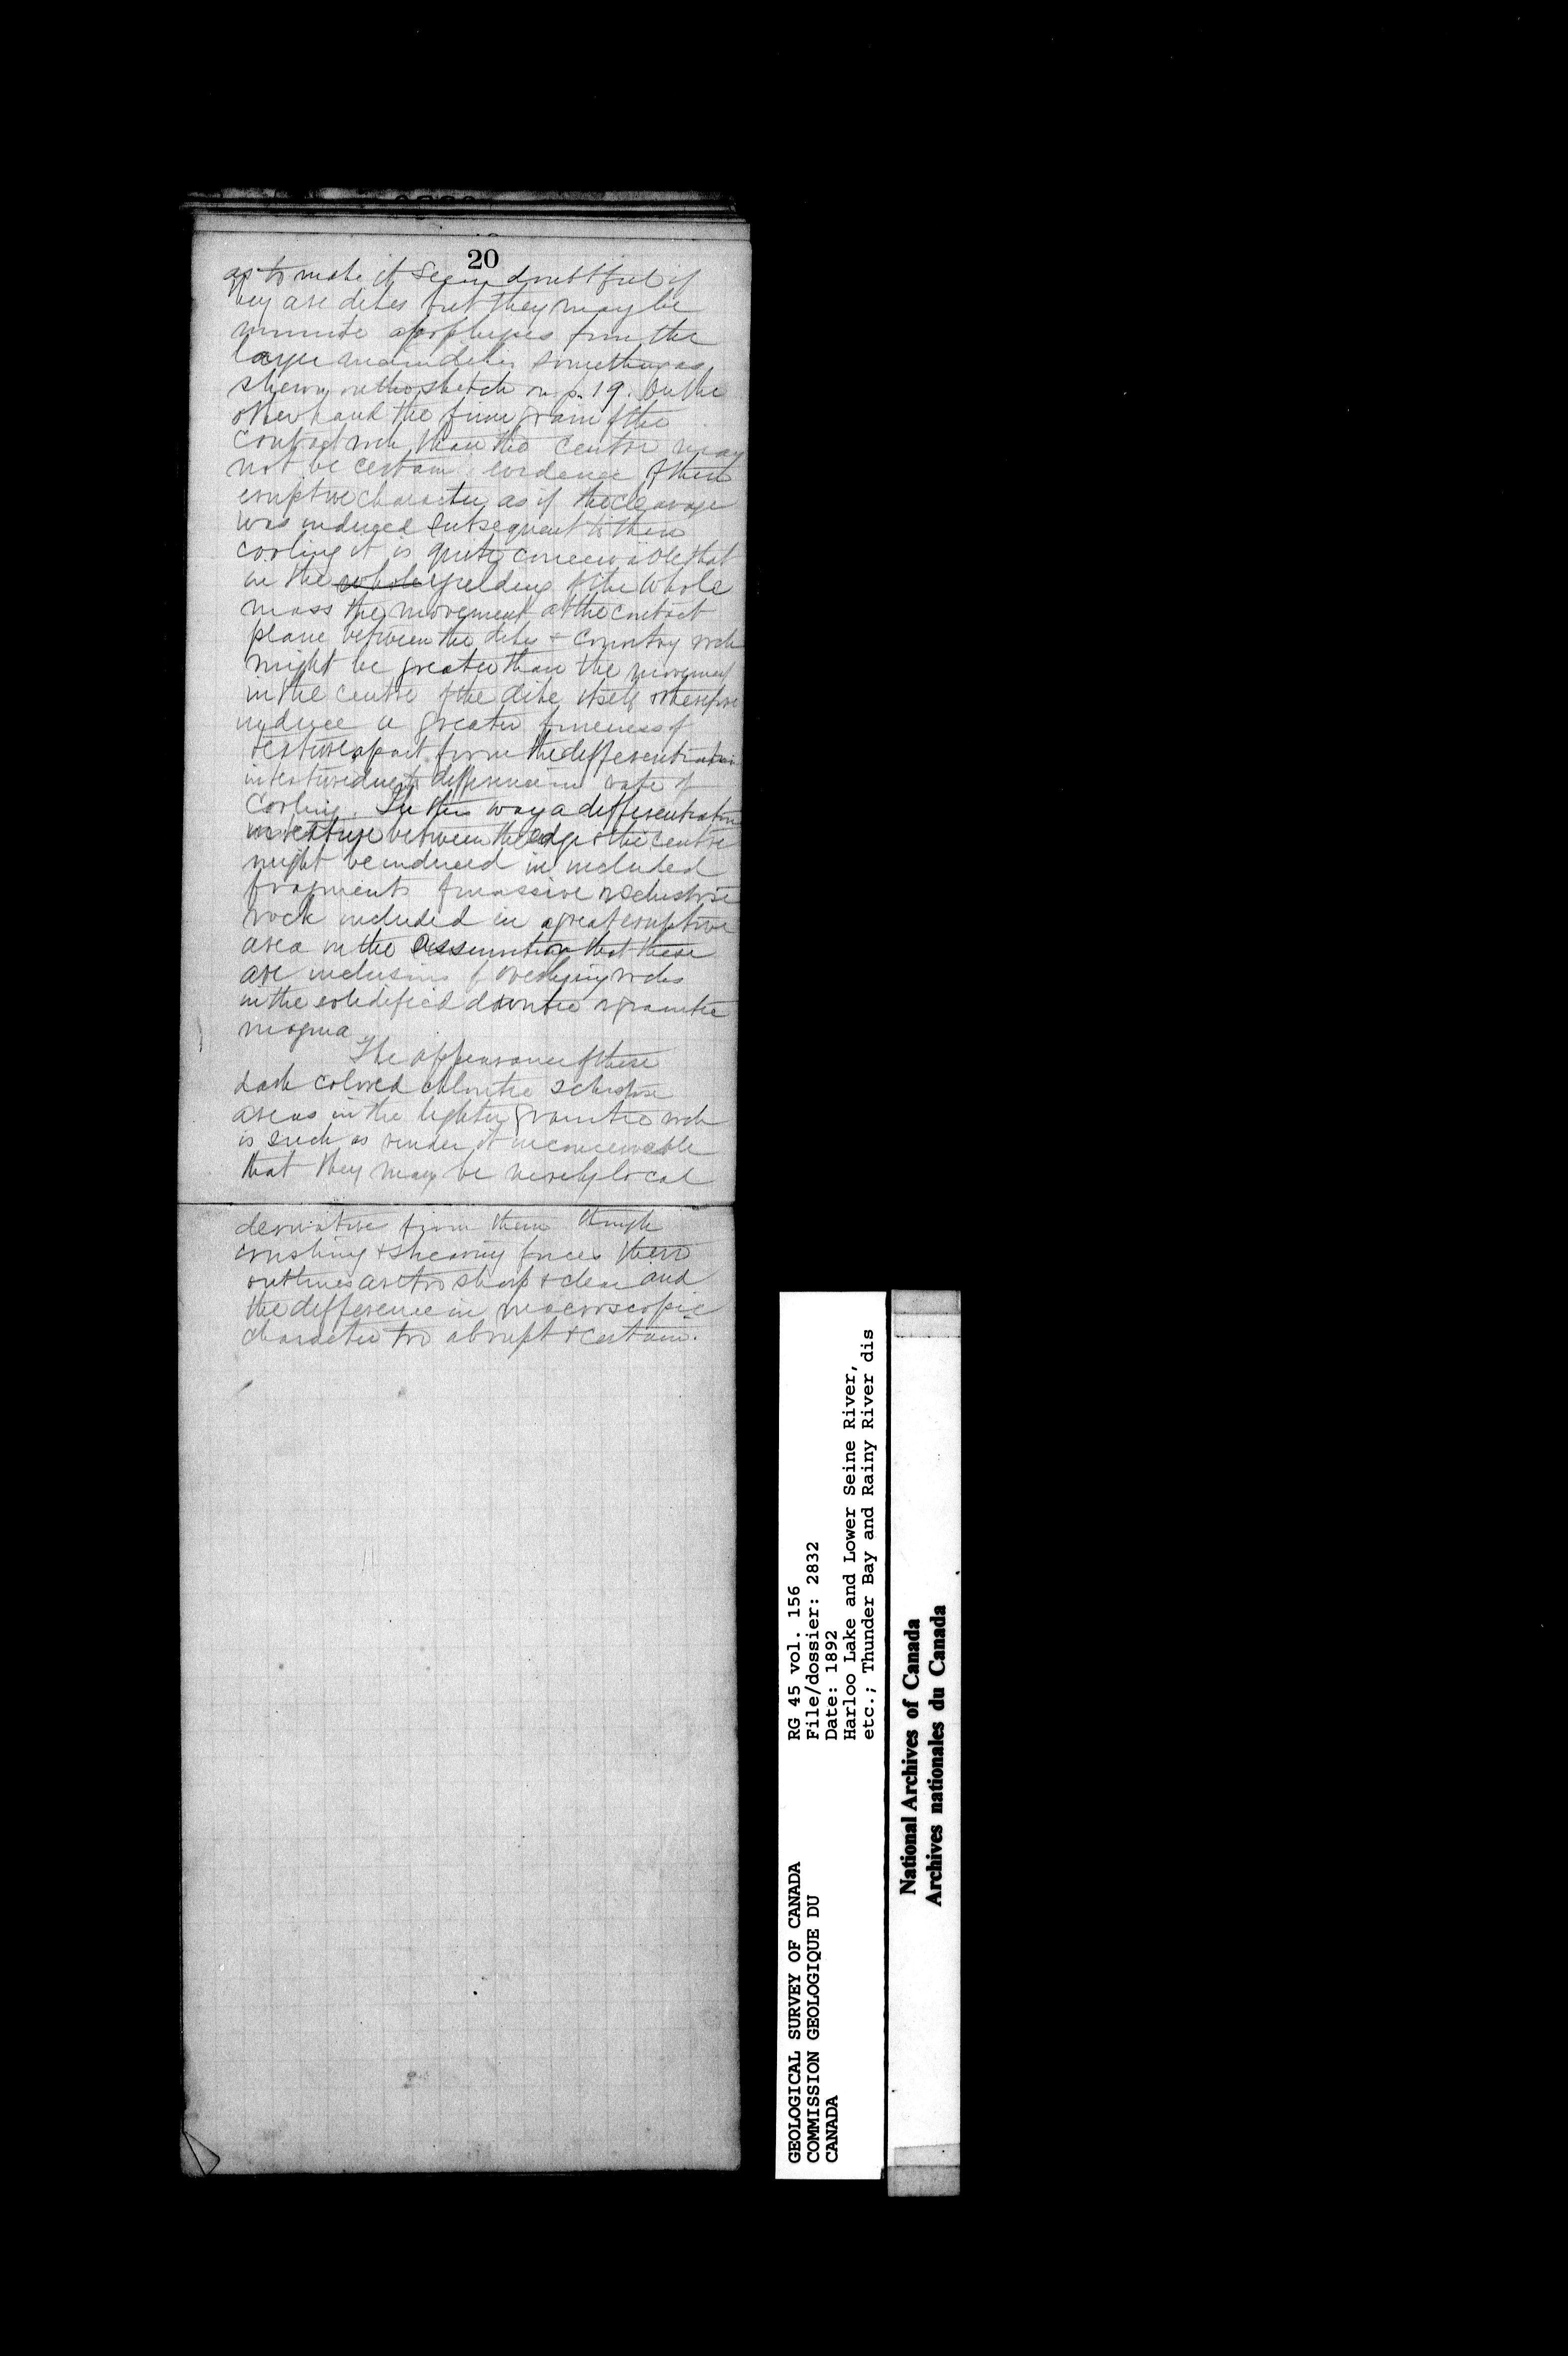 20
as to make it seem doubtful if
they are dikes but they may be
minute apophyses from the
large main dikes something as
shewn on the sketch on p. 19. On the
other hand the finer grain of the
contact rock than the centre may
not be certain evidence of their
eruptive character as if the cleavage
was induced subsequent to their
cooling it is quite conceivable that
in the whole yielding of the whole
mass the movement at the contact
plane between the dike & country rock
might be greater than the movement
in the centre of the dike itself & therefore
induce a greater fineness of
texture apart from the differentiation
in texture due to difference in rate of
cooling. In this way a differentiation
in texture between the edge & the centre
might be induced in included
fragments of massive or schistose
rock included in a great eruptive
area on the assumption that these
are inclusions of overlying rocks
in the solidified dioritic or granitic
magma
The appearance of these
dark colored chloritic schistose
areas in the lighter granitic rock
is such as render it inconceivable
that they may be merely local
derivatives from them through
crushing & shearing forces their
outlines are too sharp & clear and
the difference in macroscopic
character too abrupt & certain.
RG 45 vol. 156
File/dossier: 2832
Date: 1892
Harloo Lake and Lower Seine River,
etc.; Thunder Bay and Rainy River dis
GEOLOGICAL SURVEY OF CANADA
COMMISSION GEOLOGIQUE DU
CANADA
National Archives of Canada
Archives nationales du Canada